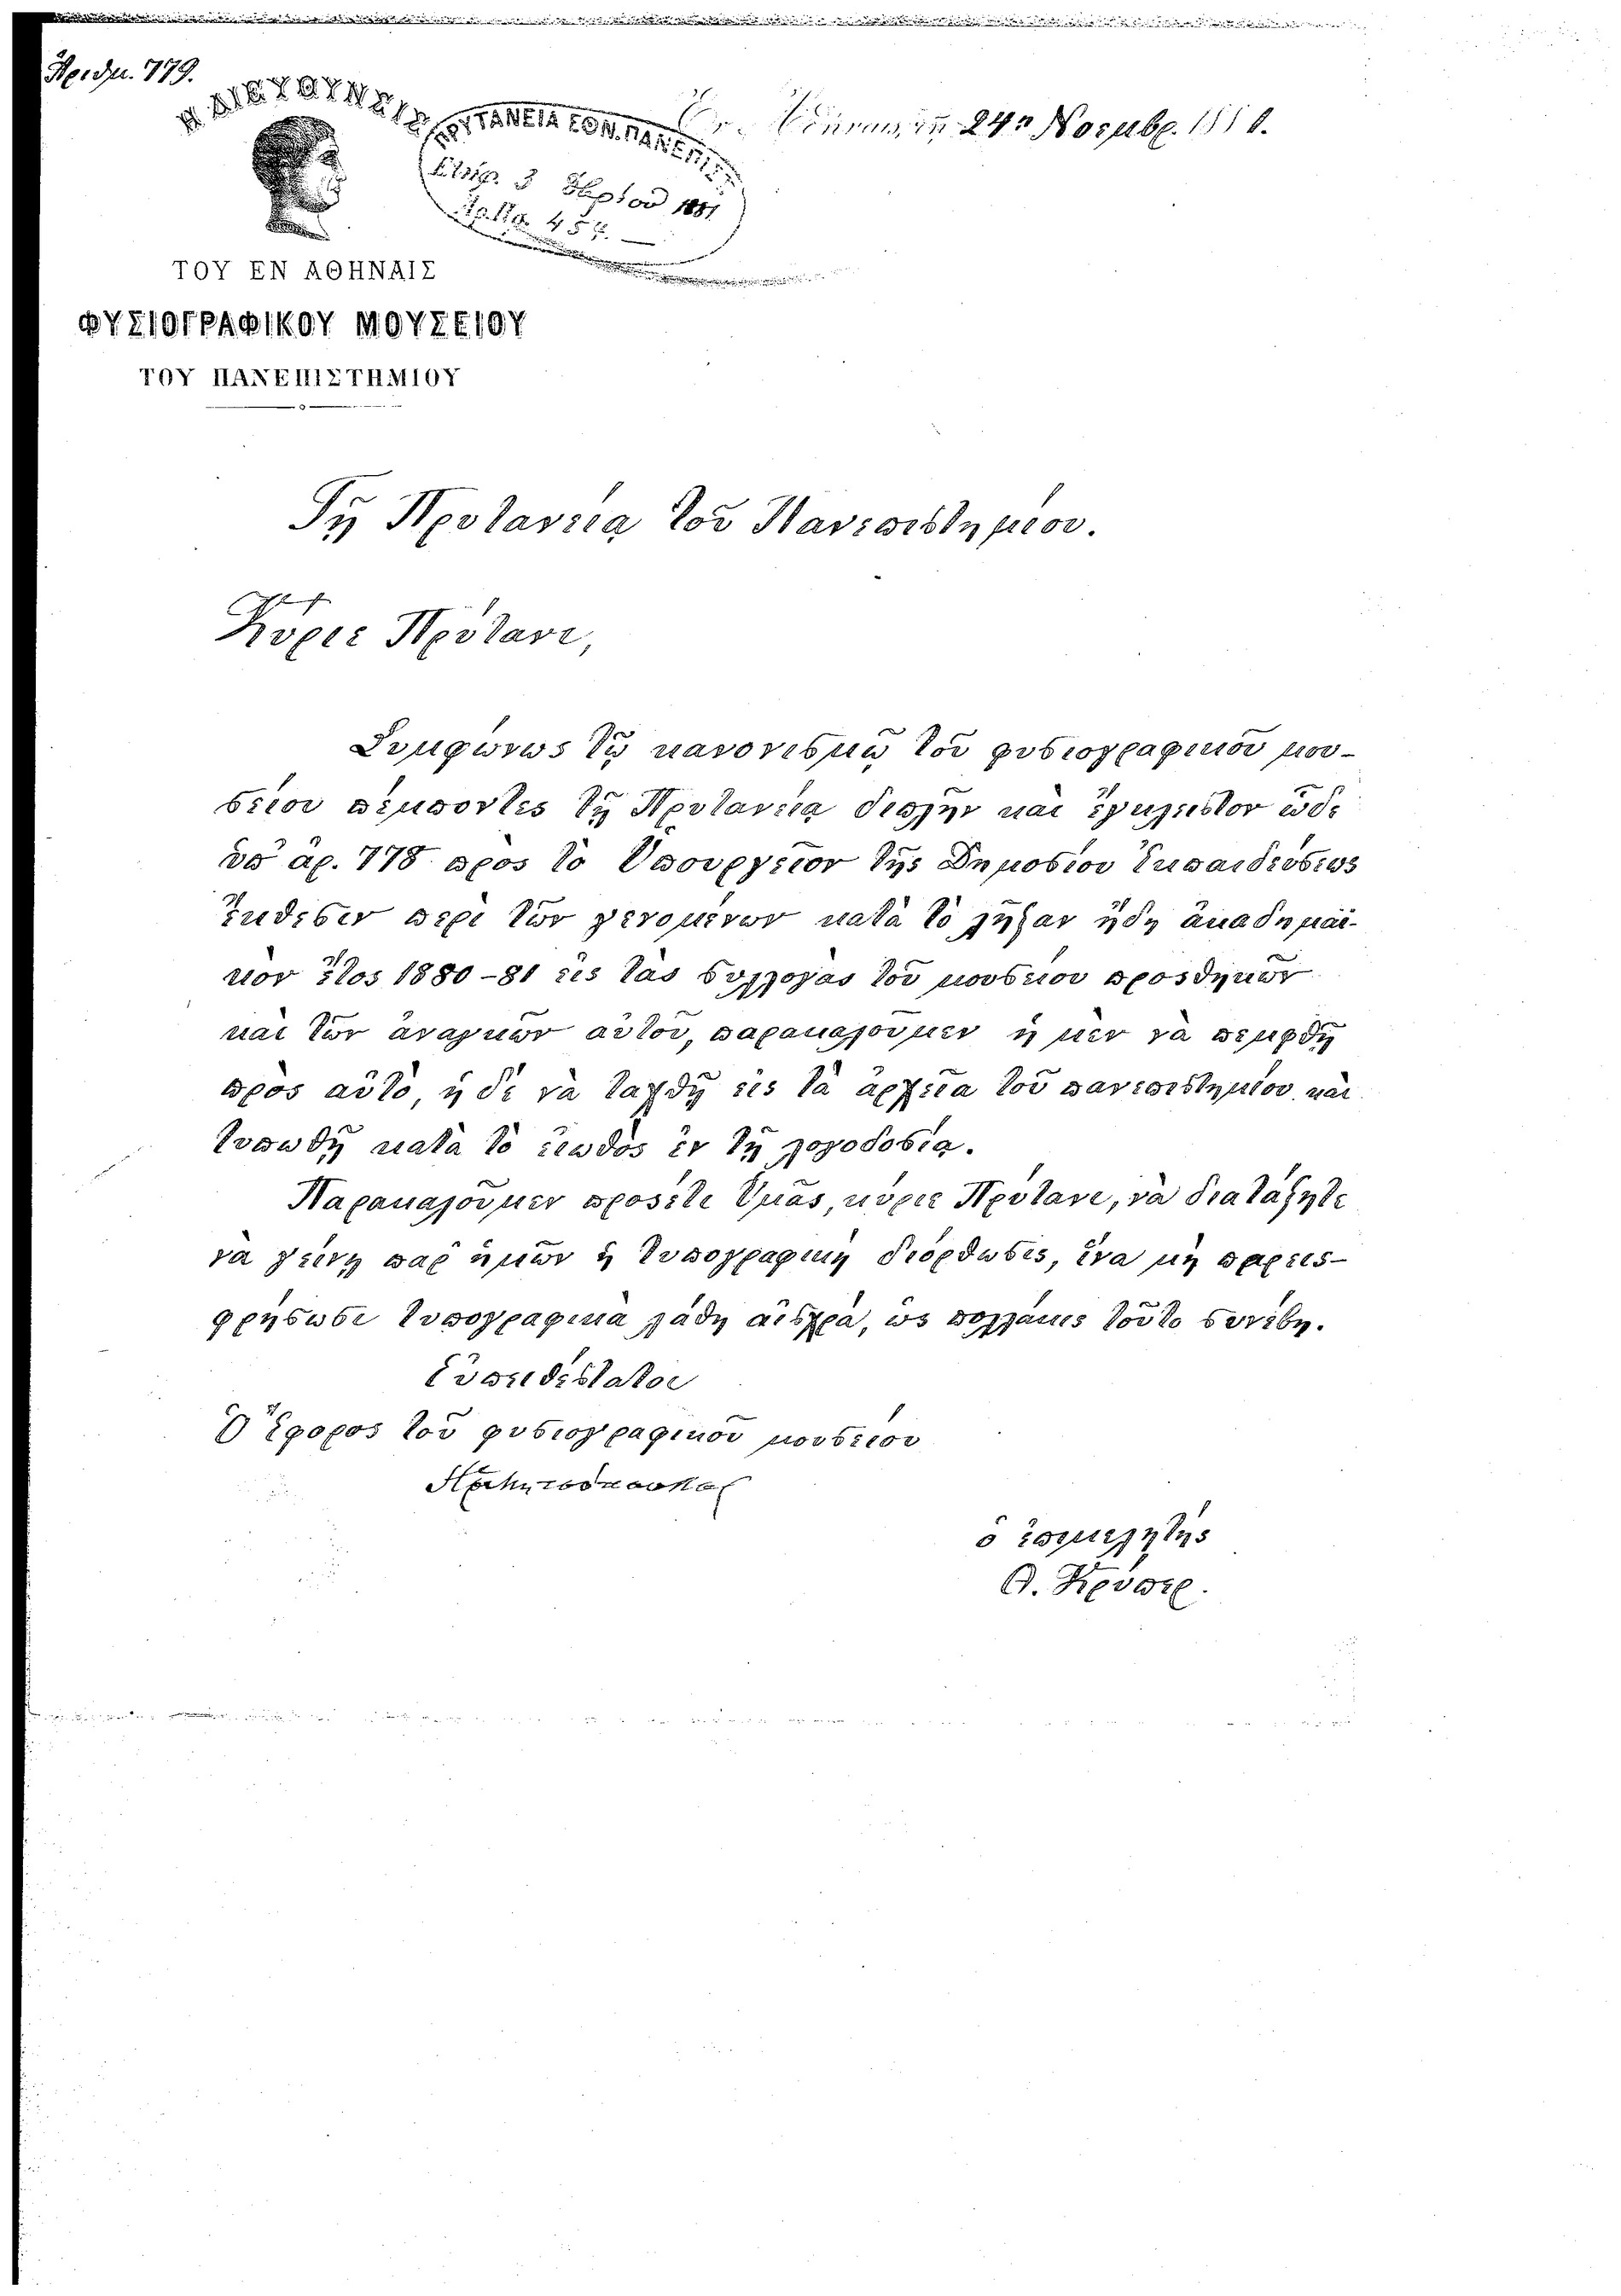 Ἀριθμ. 779.
Η ΔΙΕΥΘΥΝΣΙΣ
ΠΡΥΤΑΝΕΙΑ ΕΘΝ. ΠΑΝΕΠΙΣΤ.
Ἐν Ἀθήναις, τῇ 24ῃ Νοεμβρ. 188
3 1881
457.
ΤΟΥ ΕΝ ΑΘΗΝΑΙΣ
ΦΥΣΙΟΓΡΑΦΙΚΟΥ ΜΟΥΣΕΙΟΥ
ΤΟΥ ΠΑΝΕΠΙΣΤΗΜΙΟΥ
Τῇ Πρυτανείᾳ τοῦ Πανεπιστημίου.
Κύριε Πρύτανι,
Συμφώνως τῷ κανονισμῷ τοῦ φυσιογραφικοῦ μου-
σείου πέμποντες τῇ Πρυτανείᾳ διπλῆν καὶ ἐγκλειστον ὧδε
ὑπ' ἀρ. 778 πρὸς τὸ Ὑπουργεῖον τῆς Δημοσίου Ἐκπαιδεύσεως
ἔκθεσιν περὶ τῶν γενομένων κατὰ τὸ λῆξαν ἤδη ἀκαδημαϊ-
κὸν ἔτος 1880-81 εἰς τὰς συλλογὰς τοῦ μουσείου προσθηκῶν
καὶ τῶν ἀναγκῶν αὐτοῦ, παρακαλοῦμεν ἡ μὲν νὰ πεμφθῇ
πρὸς αὐτό, ἡ δὲ νὰ ταχθῇ εἰς τὰ ἀρχεῖα τοῦ πανεπιστημίου καὶ
τυπωθῇ κατὰ τὸ εἰωθὸς ἐν τῇ λογοδοσίᾳ.
Παρακαλοῦμεν προσέτι Ὑμᾶς, κύριε Πρύτανι, νὰ διατάξητε
νὰ γείνῃ παρ' ἡμῶν ἡ τυπογραφικὴ διόρθωσις, ἵνα μὴ παρεις-
φρήσωσι τυπογραφικὰ λάθη αἰσχρά, ὡς πολλάκις τοῦτο συνέβη.
Εὐπειθέστατοι
Ὁ Ἔφορος τοῦ φυσιογραφικοῦ μουσείου
ὁ ἐπιμελητὴς
Θ. Κρύπερ.